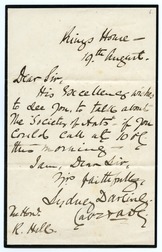 King's House —
19th August.
Dear Sir,
His Excellency wishes
to see you, to talk about
The "Society of Arts" if you
could call at
this morning —
I am, Dear Sir,
Yrs faithfully,
Sydney Darling
The Honl.
R. Hill